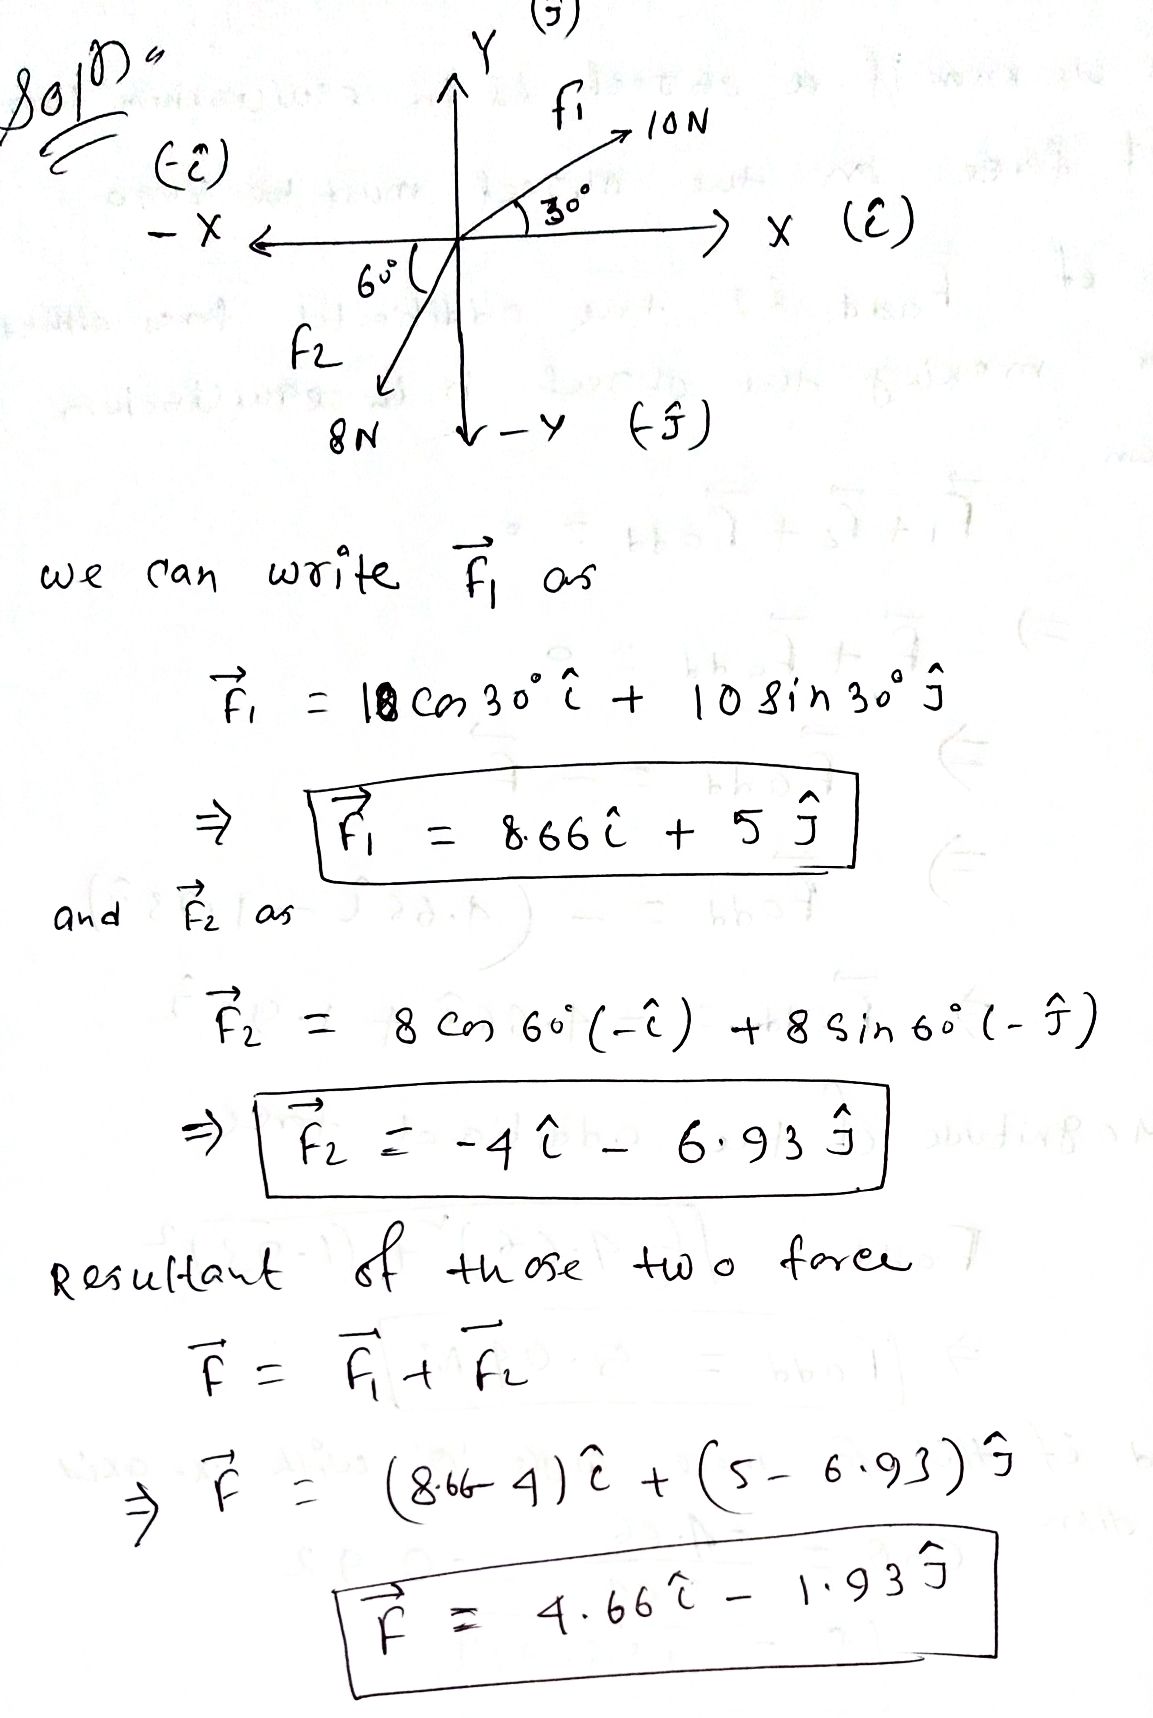 Solⁿ
Y (ĵ)
F₁
10N
(-î)
30°
-X
X (î)
60°
F₂
8N
-Y (-ĵ)
we can write F⃗₁ as
F⃗₁ = 10 cos 30° î + 10 sin 30° ĵ
⇒ F⃗₁ = 8.66 î + 5 ĵ
and F⃗₂ as
F⃗₂ = 8 cos 60° (-î) + 8 sin 60° (-ĵ)
⇒ F⃗₂ = -4 î - 6.93 ĵ
Resultant of those two force
F⃗ = F⃗₁ + F⃗₂
⇒ F⃗ = (8.66 - 4) î + (5 - 6.93) ĵ
F⃗ = 4.66 î - 1.93 ĵ